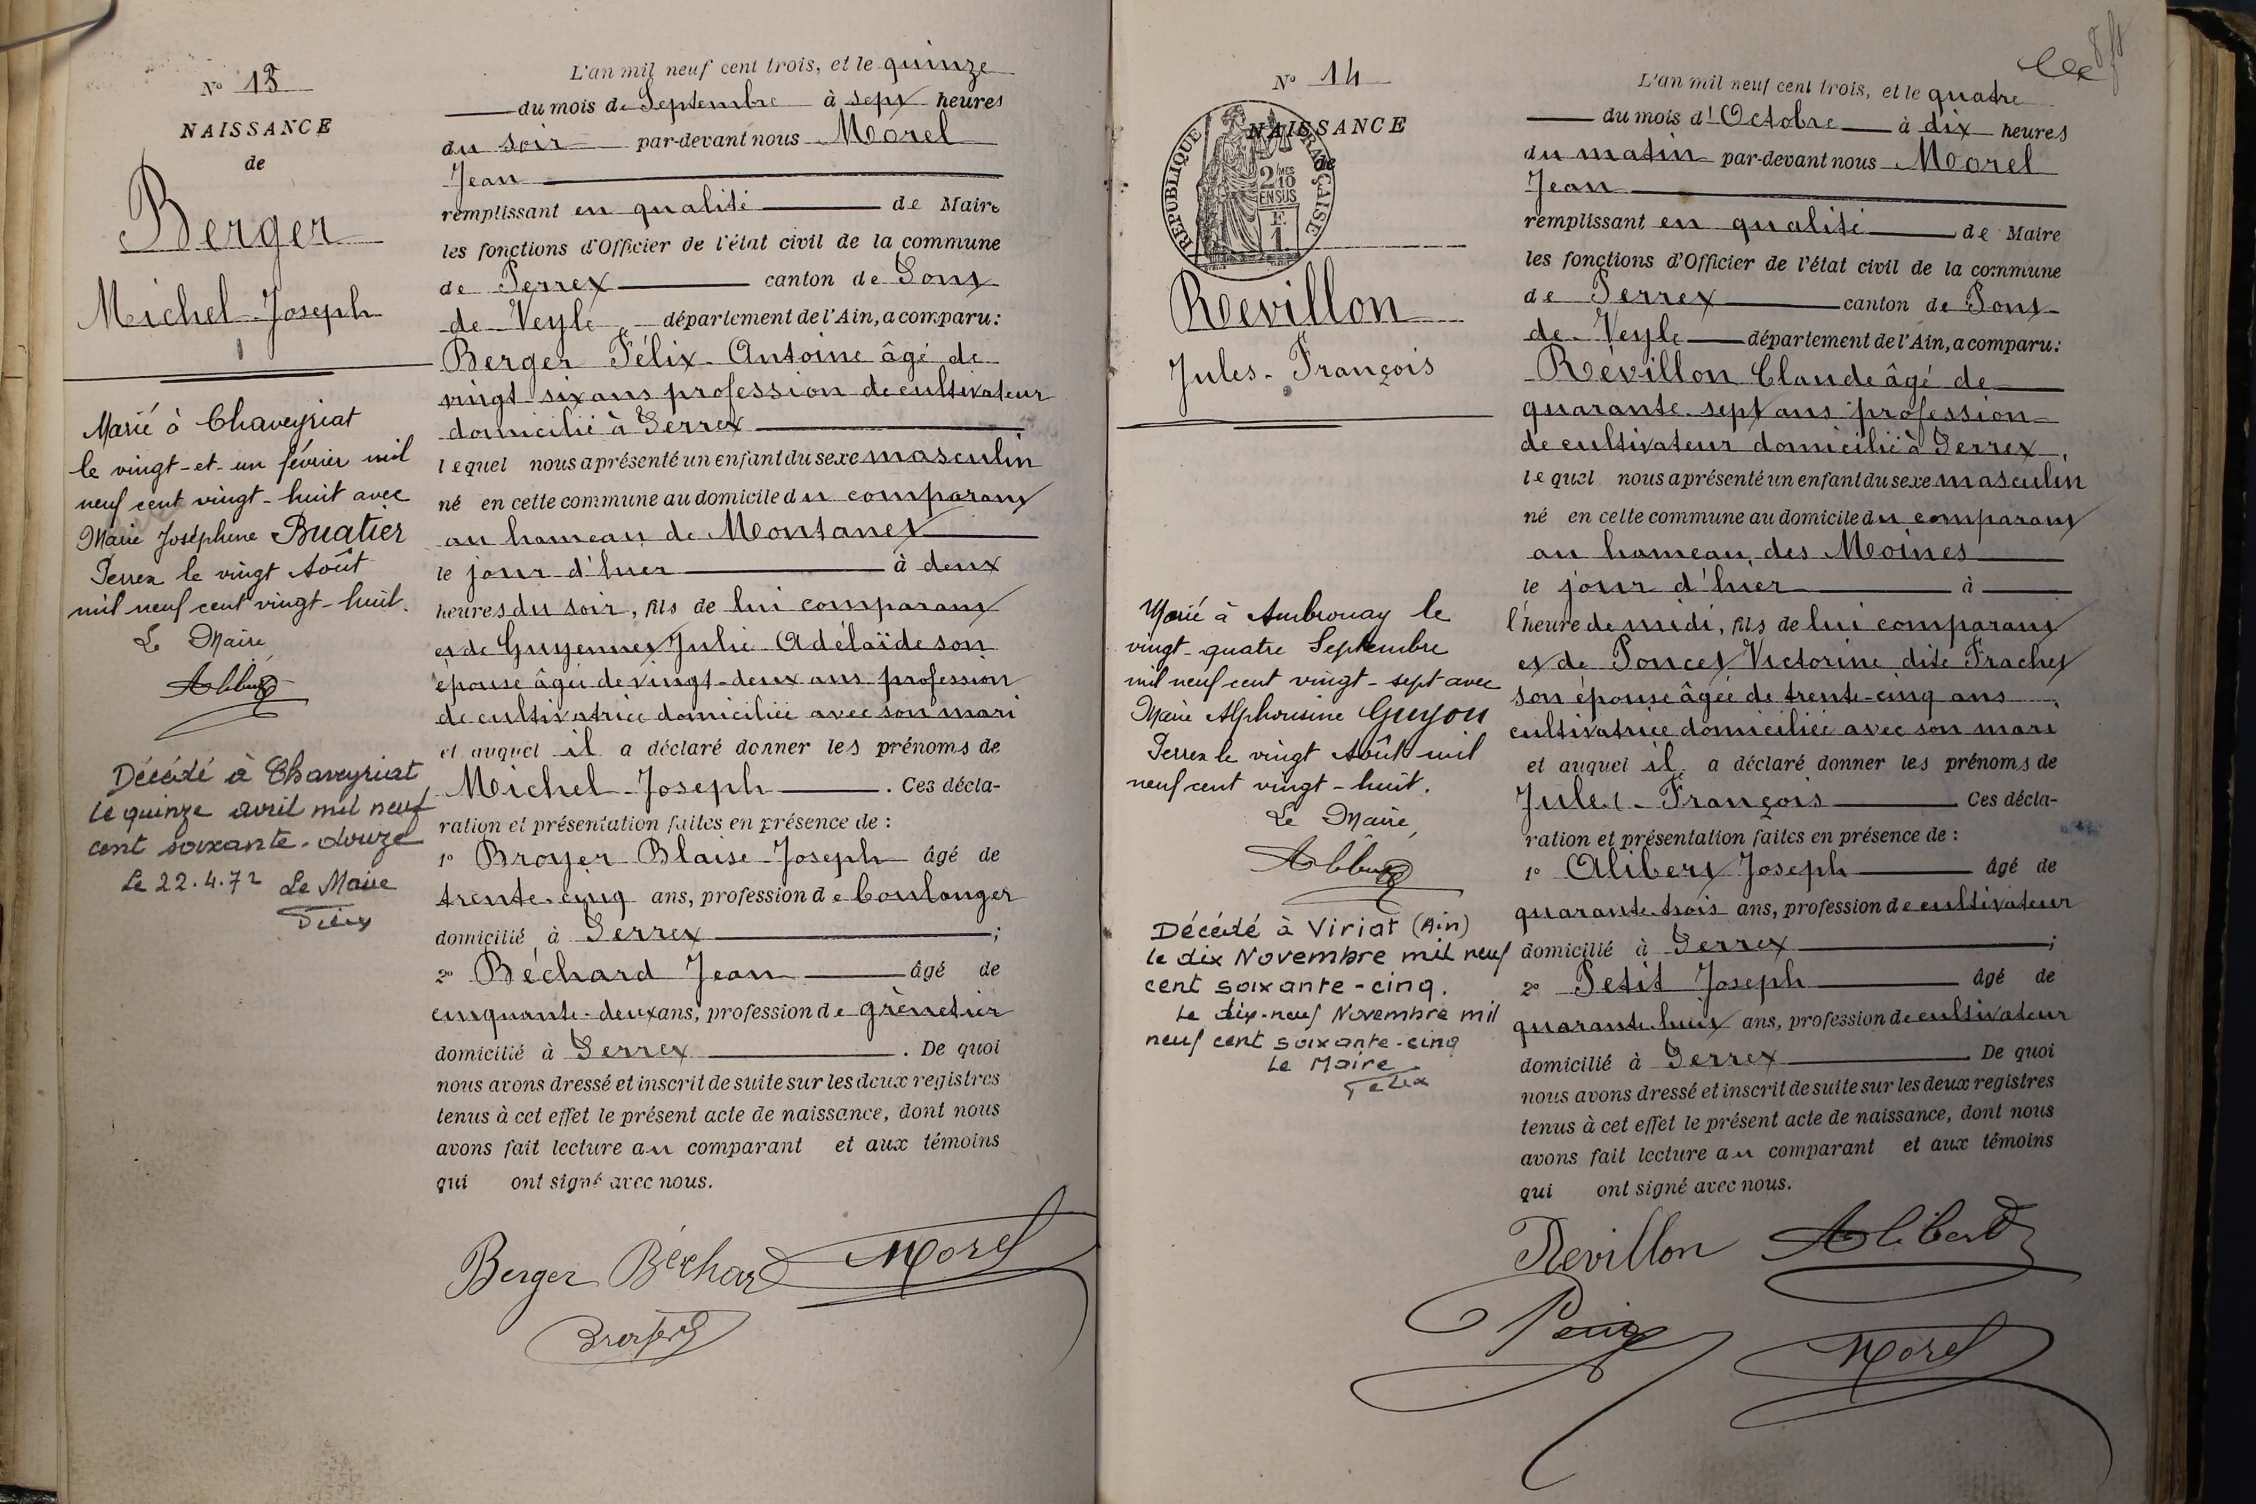 N° 13
NAISSANCE
de
Berger
Michel-Joseph
Marié à Chaveyriat
le vingt-et-un février mil
neuf cent vingt-huit avec
Marie Joséphine Buatier
Perrex le vingt Août
mil neuf cent vingt-huit.
Le Maire,
Décédé à Chaveyriat
le quinze avril mil neuf
cent soixante-douze
Le 22.4.72 Le Maire
L'an mil neuf cent trois, et le quinze
du mois de Septembre à sept heures
du soir par-devant nous Morel
Jean
remplissant en qualité de Maire
les fonctions d'Officier de l'état civil de la commune
de Perrex canton de Pont
de Veyle département de l'Ain, a comparu:
Berger Félix-Antoine âgé de
vingt-six ans profession de cultivateur
domicilié à Perrex
lequel nous a présenté un enfant du sexe masculin
né en cette commune au domicile du comparant
au hameau de Montanet
le jour d'hier à deux
heures du soir, fils de lui comparant
et de Guyennet Julie Adélaïde son
épouse âgée de vingt-deux ans profession
de cultivatrice domiciliée avec son mari
et auquel il a déclaré donner les prénoms de
Michel-Joseph. Ces décla-
ration et présentation faites en présence de :
1° Broyer Blaise-Joseph âgé de
trente-cinq ans, profession de boulanger
domicilié à Perrex ;
2° Béchard Jean âgé de
cinquante-deux ans, profession de grènetier
domicilié à Perrex . De quoi
nous avons dressé et inscrit de suite sur les deux registres
tenus à cet effet le présent acte de naissance, dont nous
avons fait lecture au comparant et aux témoins
qui ont signé avec nous.
Berger Béchard Morel
N° 14
NAISSANCE
de
REPUBLIQUE FRANÇAISE
2/10 EN SUS
E
1
Révillon
Jules-François
Marié à Ambronay le
vingt-quatre Septembre
mil neuf cent vingt-sept avec
Marie Alphonsine Guyon
Perrex le vingt Août mil
neuf cent vingt-huit.
Le Maire,
Décédé à Viriat (Ain)
le dix Novembre mil neuf
cent soixante-cinq.
Le dix-neuf Novembre mil
neuf cent soixante-cinq
Le Maire
L'an mil neuf cent trois, et le quatre
du mois d'Octobre à dix heures
du matin par-devant nous Morel
Jean
remplissant en qualité de Maire
les fonctions d'Officier de l'état civil de la commune
de Perrex canton de Pont
de Veyle département de l'Ain, a comparu:
Révillon Claude âgé de
quarante-sept ans profession
de cultivateur domicilié à Perrex,
lequel nous a présenté un enfant du sexe masculin
né en cette commune au domicile du comparant
au hameau des Moines
le jour d'hier à
l'heure de midi, fils de lui comparant
et de Poncet Victorine dite Frachet
son épouse âgée de trente-cinq ans
cultivatrice domiciliée avec son mari
et auquel il a déclaré donner les prénoms de
Jules-François Ces décla-
ration et présentation faites en présence de :
1° Alibert Joseph âgé de
quarante-trois ans, profession de cultivateur
domicilié à Perrex ;
2° Petit Joseph âgé de
quarante-huit ans, profession de cultivateur
domicilié à Perrex De quoi
nous avons dressé et inscrit de suite sur les deux registres
tenus à cet effet le présent acte de naissance, dont nous
avons fait lecture au comparant et aux témoins
qui ont signé avec nous.
Révillon Alibert
Morel